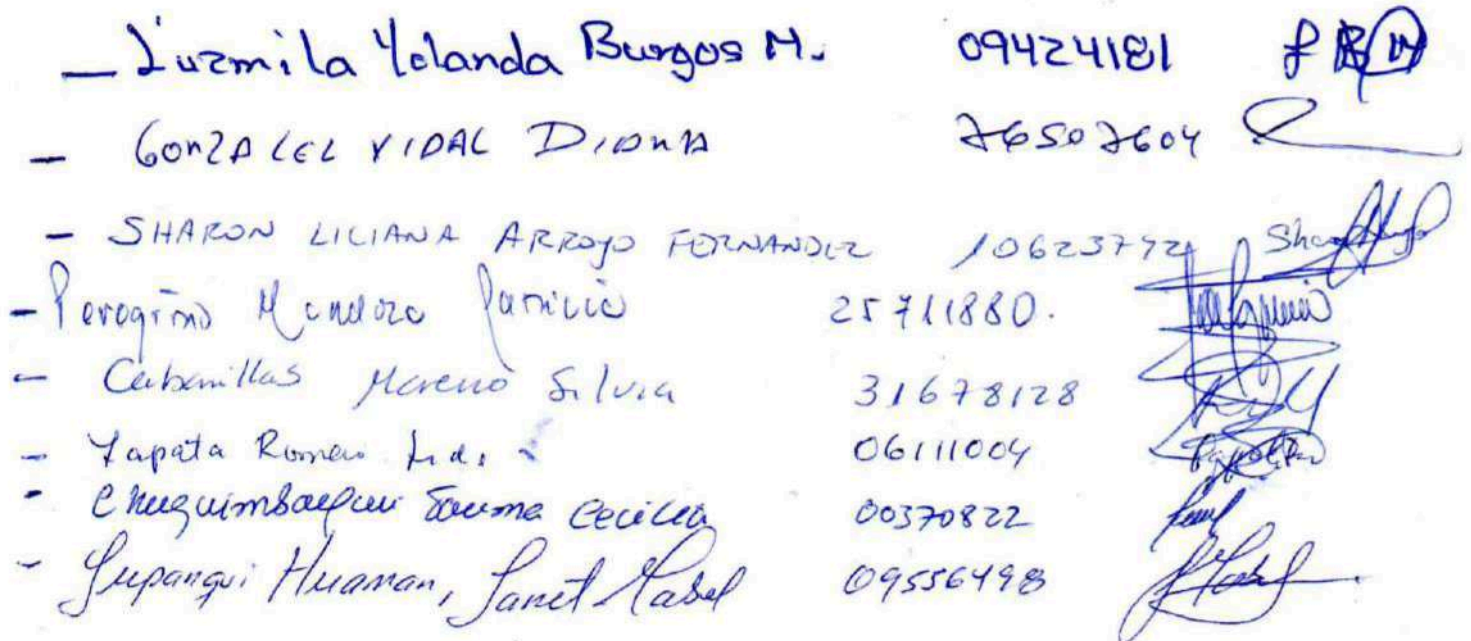 - Luzmila Yolanda Burgos M. 09424181
- GONZALEZ VIDAL DIANA 76507604
- SHARON LILIANA ARROYO FERNANDEZ 10623792
- Peregrino Mendoza Patricia 25711880.
- Cabanillas Moreno Silvia 31678128
- Zapata 06111004
- Cecilia 00370822
- Yupanqui Huaman, Janet Mabel 09556498